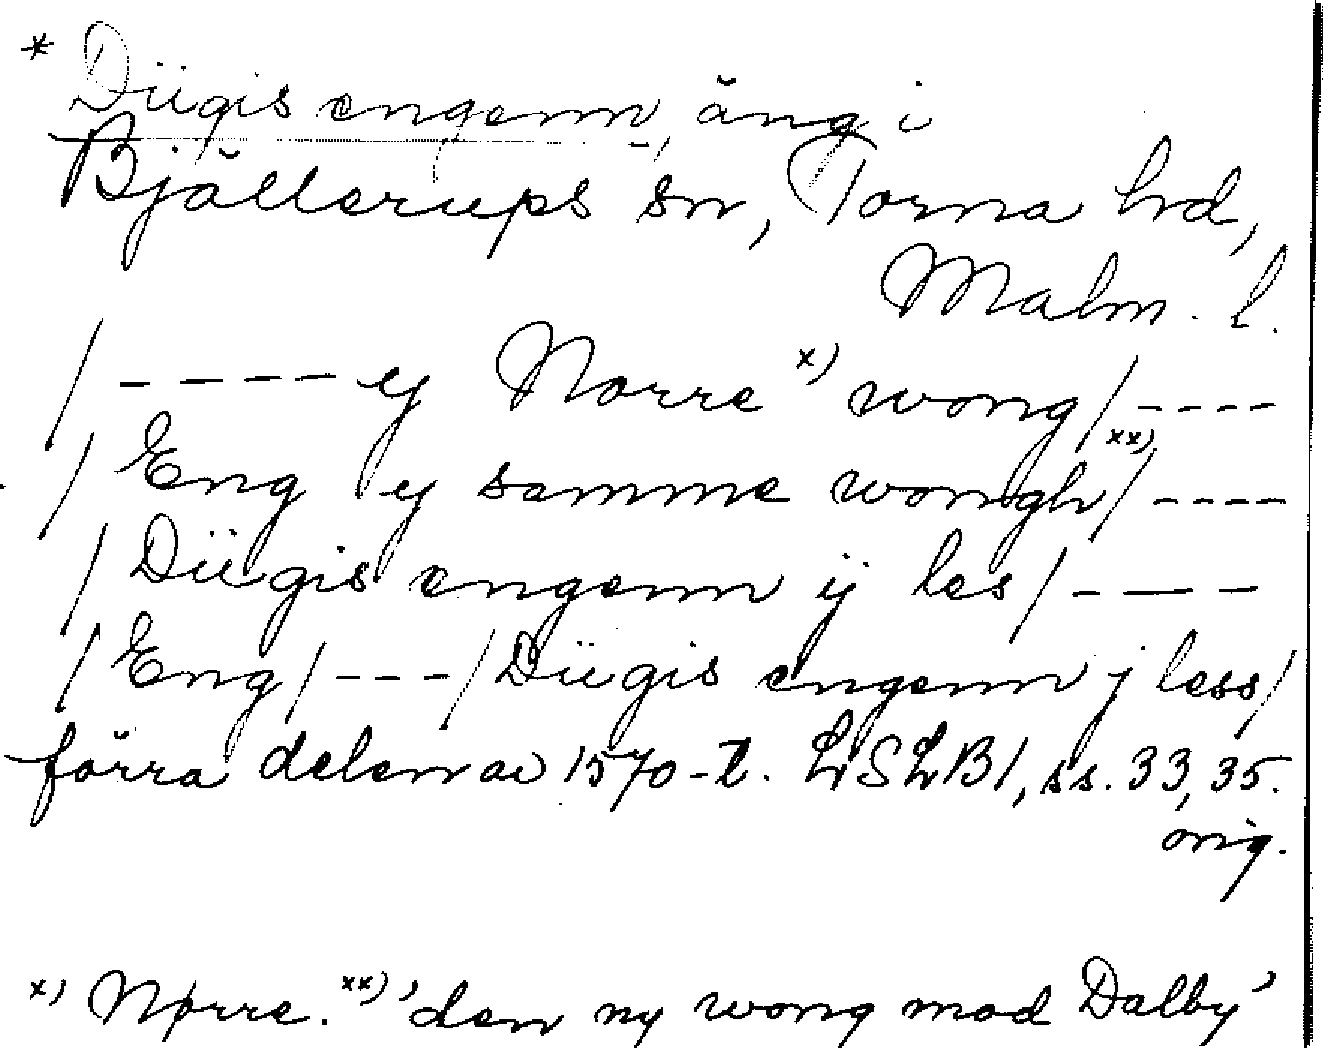 * Dügis engenn, äng i
Bjällerups sn, Torna hd,
Malm. l.
/ ----- ij Norre x) wong / ----
/ Eng ij samme wongh xx) / ----
/ Düigis engenn ij les / ---
/ Eng / --- / Düigis engenn j less /
förra delen av 1570-t. LSLB1, ss. 33, 35.
orig.
x) Nørre. xx) 'den ny wong mod Dalby'